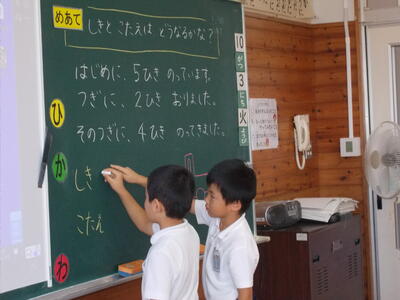 めあて
しきと こたえは どうなるかな?
はじめに、5ひき のっています。
つぎに、2ひき おりました。
そのつぎに、4ひき のってきました。
しき
こたえ
ひ
か
わ
10
がつ
3
にち
火
ようび